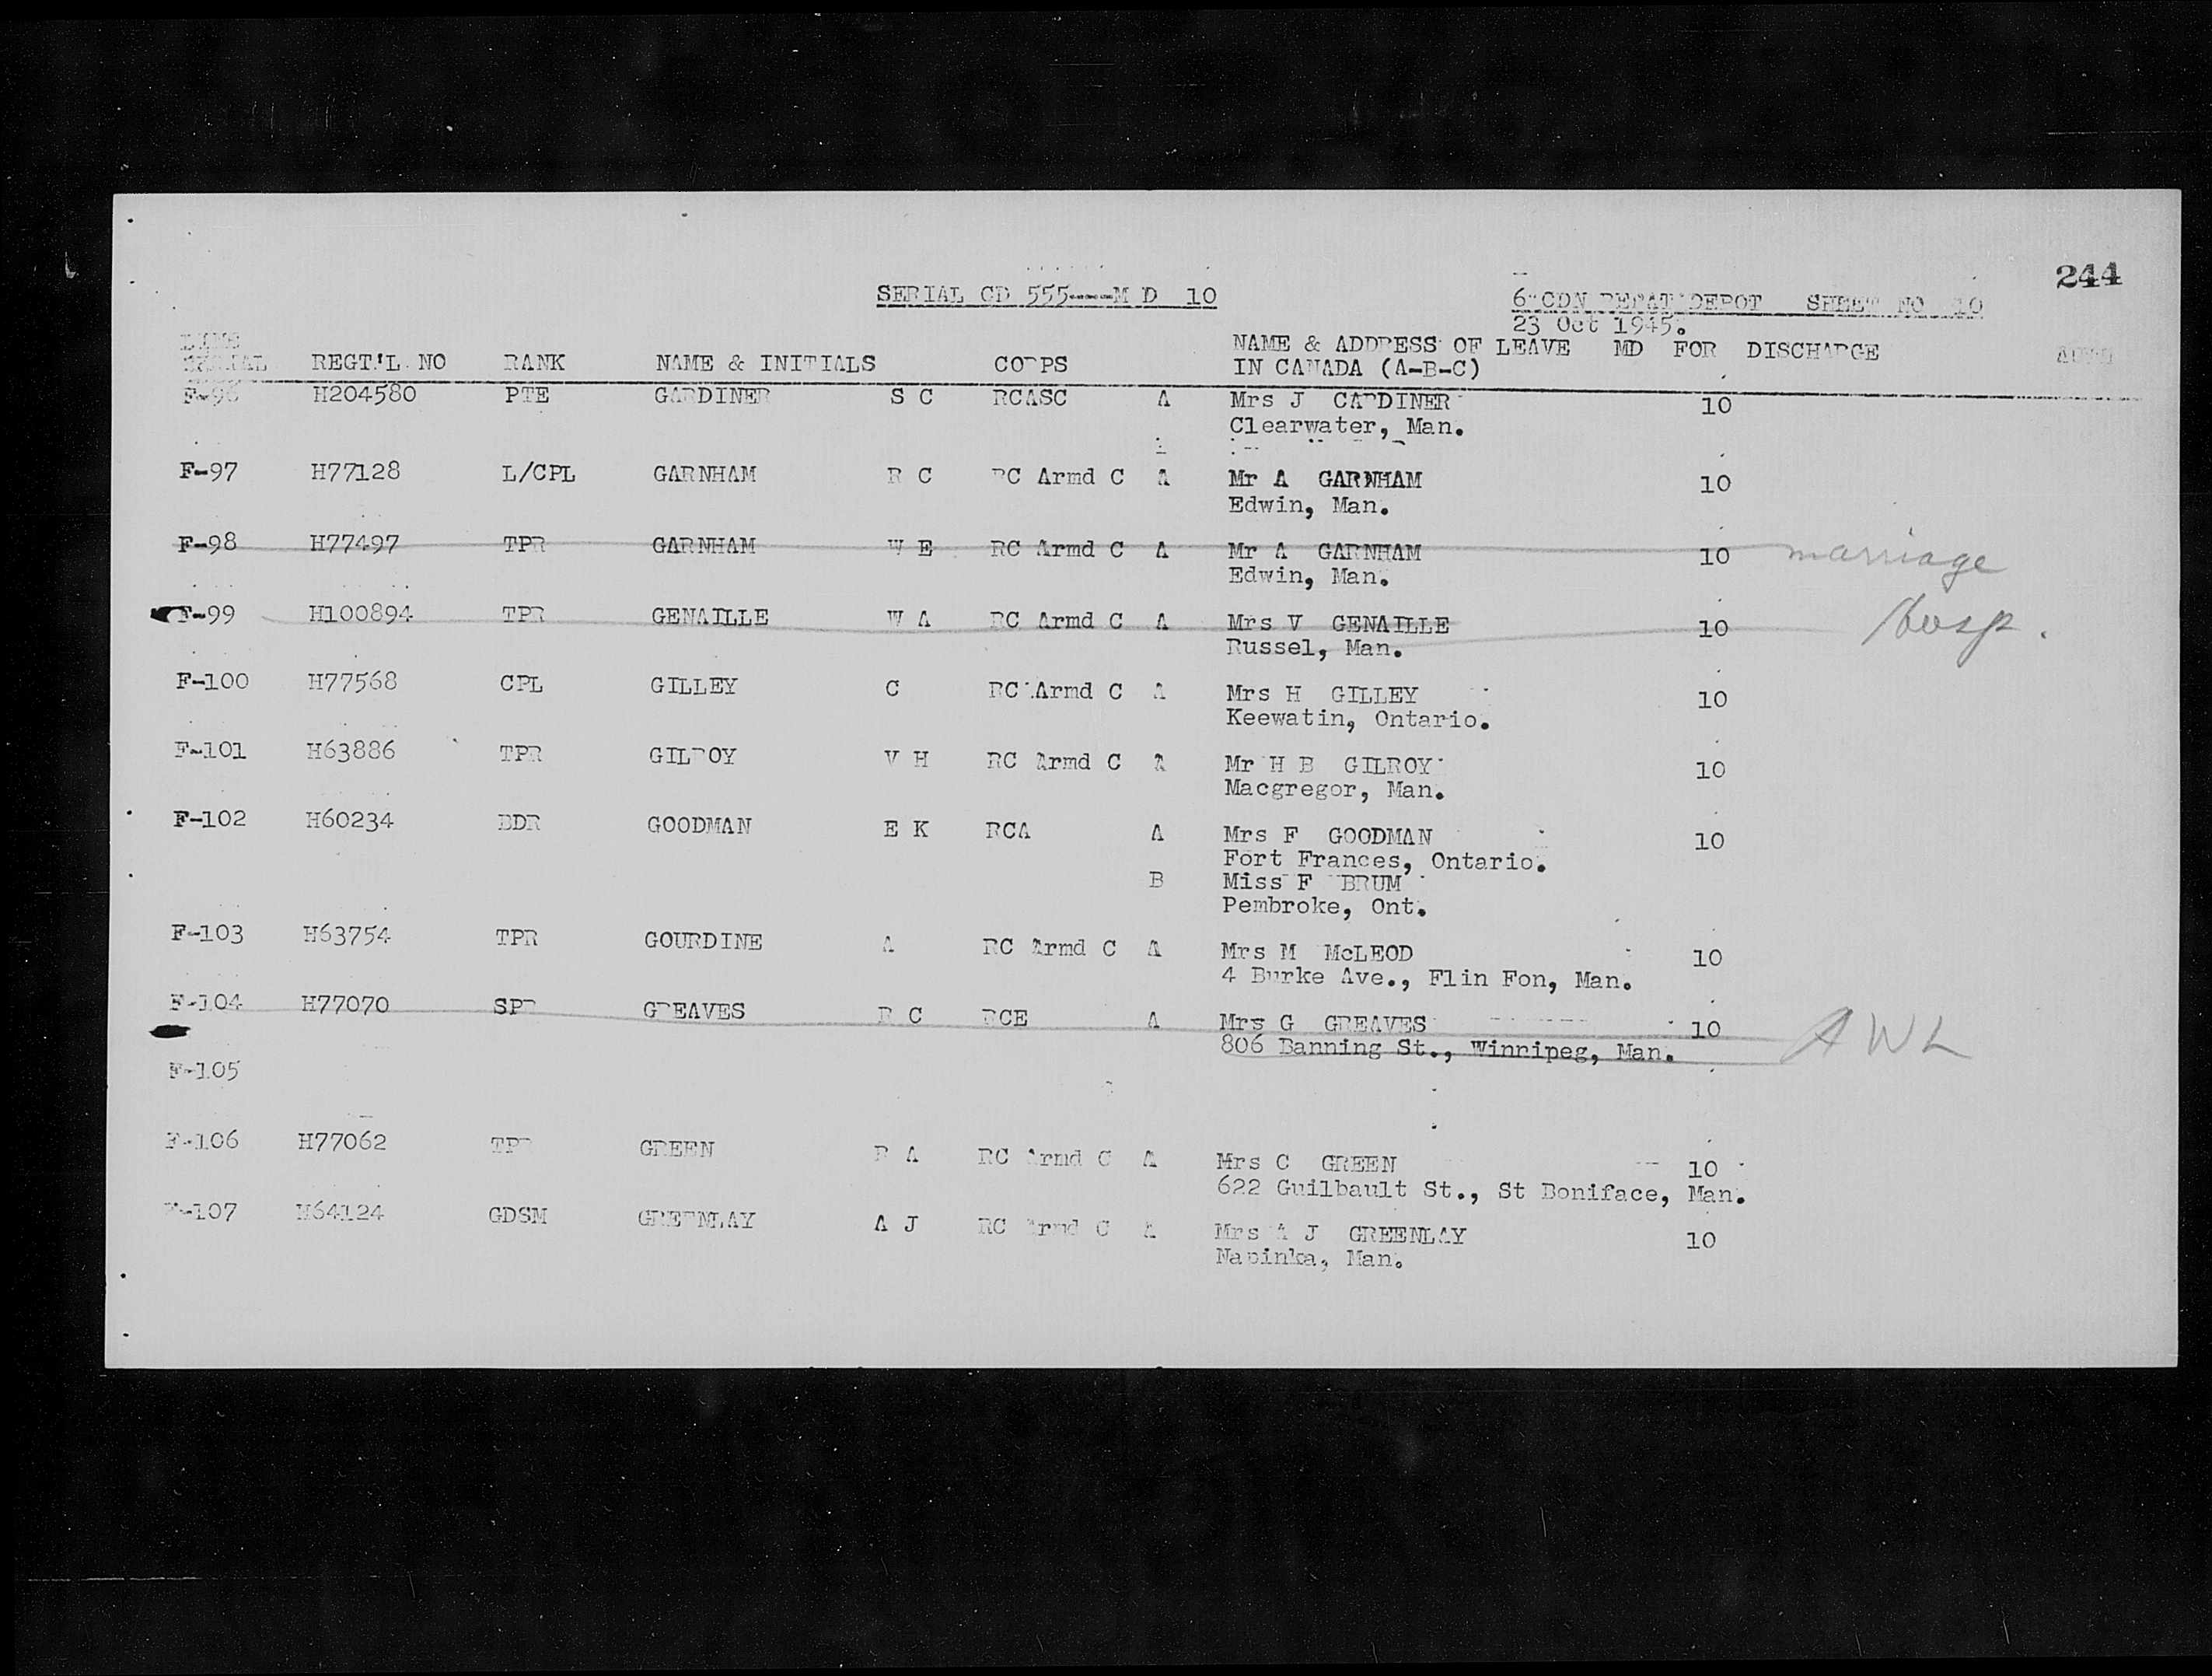 244
SERIAL CD 555----M D 10
6 CDN REPAT DEPOT SHEET NO 10
23 Oct 1945.
SERIAL REGT'L NO RANK NAME & INITIALS CORPS NAME & ADDRESS OF LEAVE MD FOR DISCHARGE
IN CANADA (A-B-C)
F-96 H204580 PTE GARDINER S C RCASC A Mrs J CARDINER 10
Clearwater, Man.
F-97 H77128 L/CPL GARNHAM R C RC Armd C A Mr A GARNHAM 10
Edwin, Man.
F-98 H77497 TPR GARNHAM W E RC Armd C A Mr A GARNHAM 10 marriage
Edwin, Man.
F-99 H100894 TPR GENAILLE W A RC Armd C A Mrs V GENAILLE 10 hosp.
Russel, Man.
F-100 H77568 CPL GILLEY C RC Armd C A Mrs H GILLEY 10
Keewatin, Ontario.
F-101 H63886 TPR GILROY V H RC Armd C A Mr H B GILROY 10
Macgregor, Man.
F-102 H60234 BDR GOODMAN E K RCA A Mrs F GOODMAN 10
Fort Frances, Ontario.
B Miss F BRUM
Pembroke, Ont.
F-103 H63754 TPR GOURDINE A RC Armd C A Mrs M McLEOD 10
4 Burke Ave., Flin Fon, Man.
F-104 H77070 SPR GREAVES R C RCE A Mrs G GREAVES 10 AWL
806 Banning St., Winnipeg, Man.
F-105
F-106 H77062 TPR GREEN R A RC Armd C A Mrs C GREEN 10
622 Guilbault St., St Boniface, Man.
F-107 H64124 GDSM GREENLAY A J RC Armd C A Mrs A J GREENLAY 10
Napinka, Man.